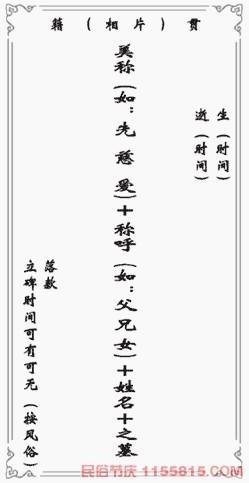 贯（相片）籍
生（时间）
逝（时间）
美称（如：先慈爱）+称呼（如：父兄女）+姓名+之墓
落款
立碑时间可有可无（按风俗）
民俗节庆 1155815.com